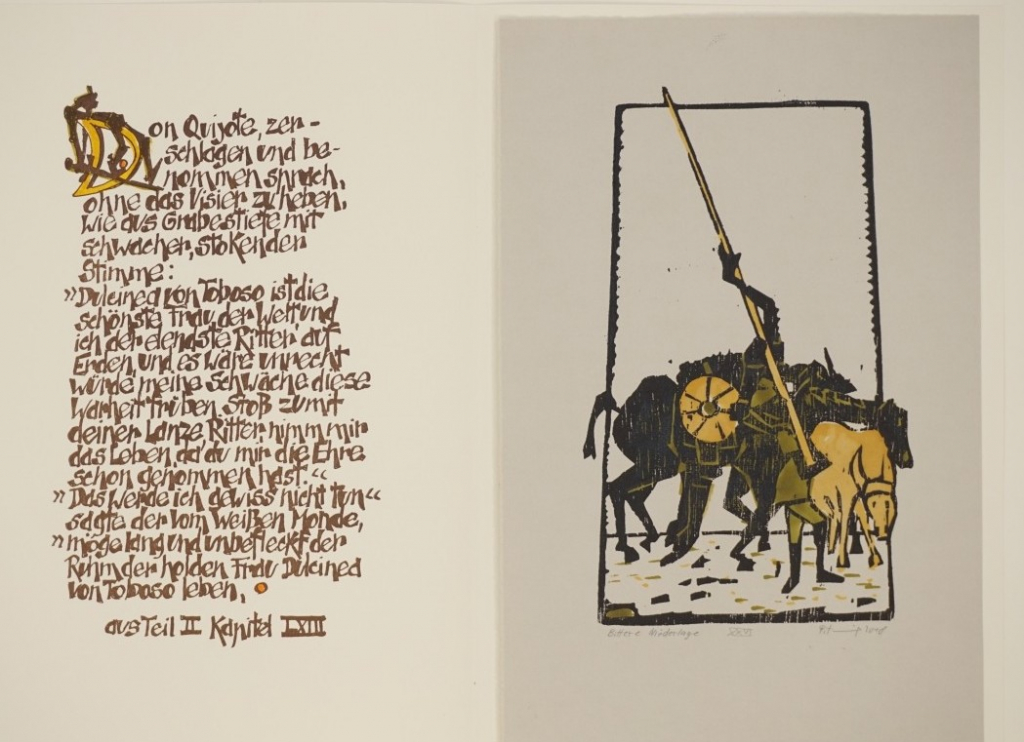 Don Quijote, zer-
schlagen und be-
nommen sprach,
ohne das Visier zu heben,
wie aus Grabestiefe mit
schwacher, stokender
Stimme:
"Dulcinea von Toboso ist die
schönste Frau der Welt, und
ich der elendste Ritter auf
Erden, und es wäre unrecht
würde meine Schwäche diese
Warheit trüben. Stoß zu mit
deiner Lanze, Ritter, nimm mir
das Leben, da du mir die Ehre
schon genommen hast."
"Das werde ich gewiss nicht tun"
sagte der vom Weißen Monde,
"möge lang und unbefleckt der
Ruhm der holden Frau Dulcinea
von Toboso leben.
aus Teil II Kapitel LXIII
Bittere Niederlage